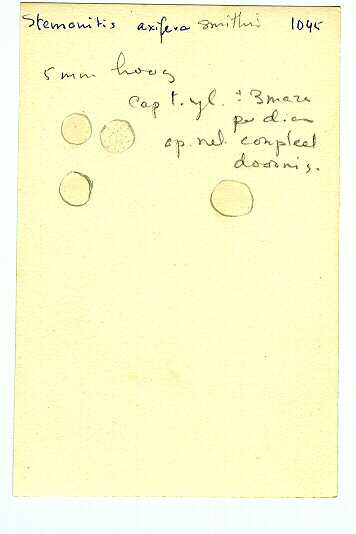 Stemonitis axifera smithii 1045
5 mm hoog
cap t. yl. ± 3 maze
per diam
op. net compleet
doornig.